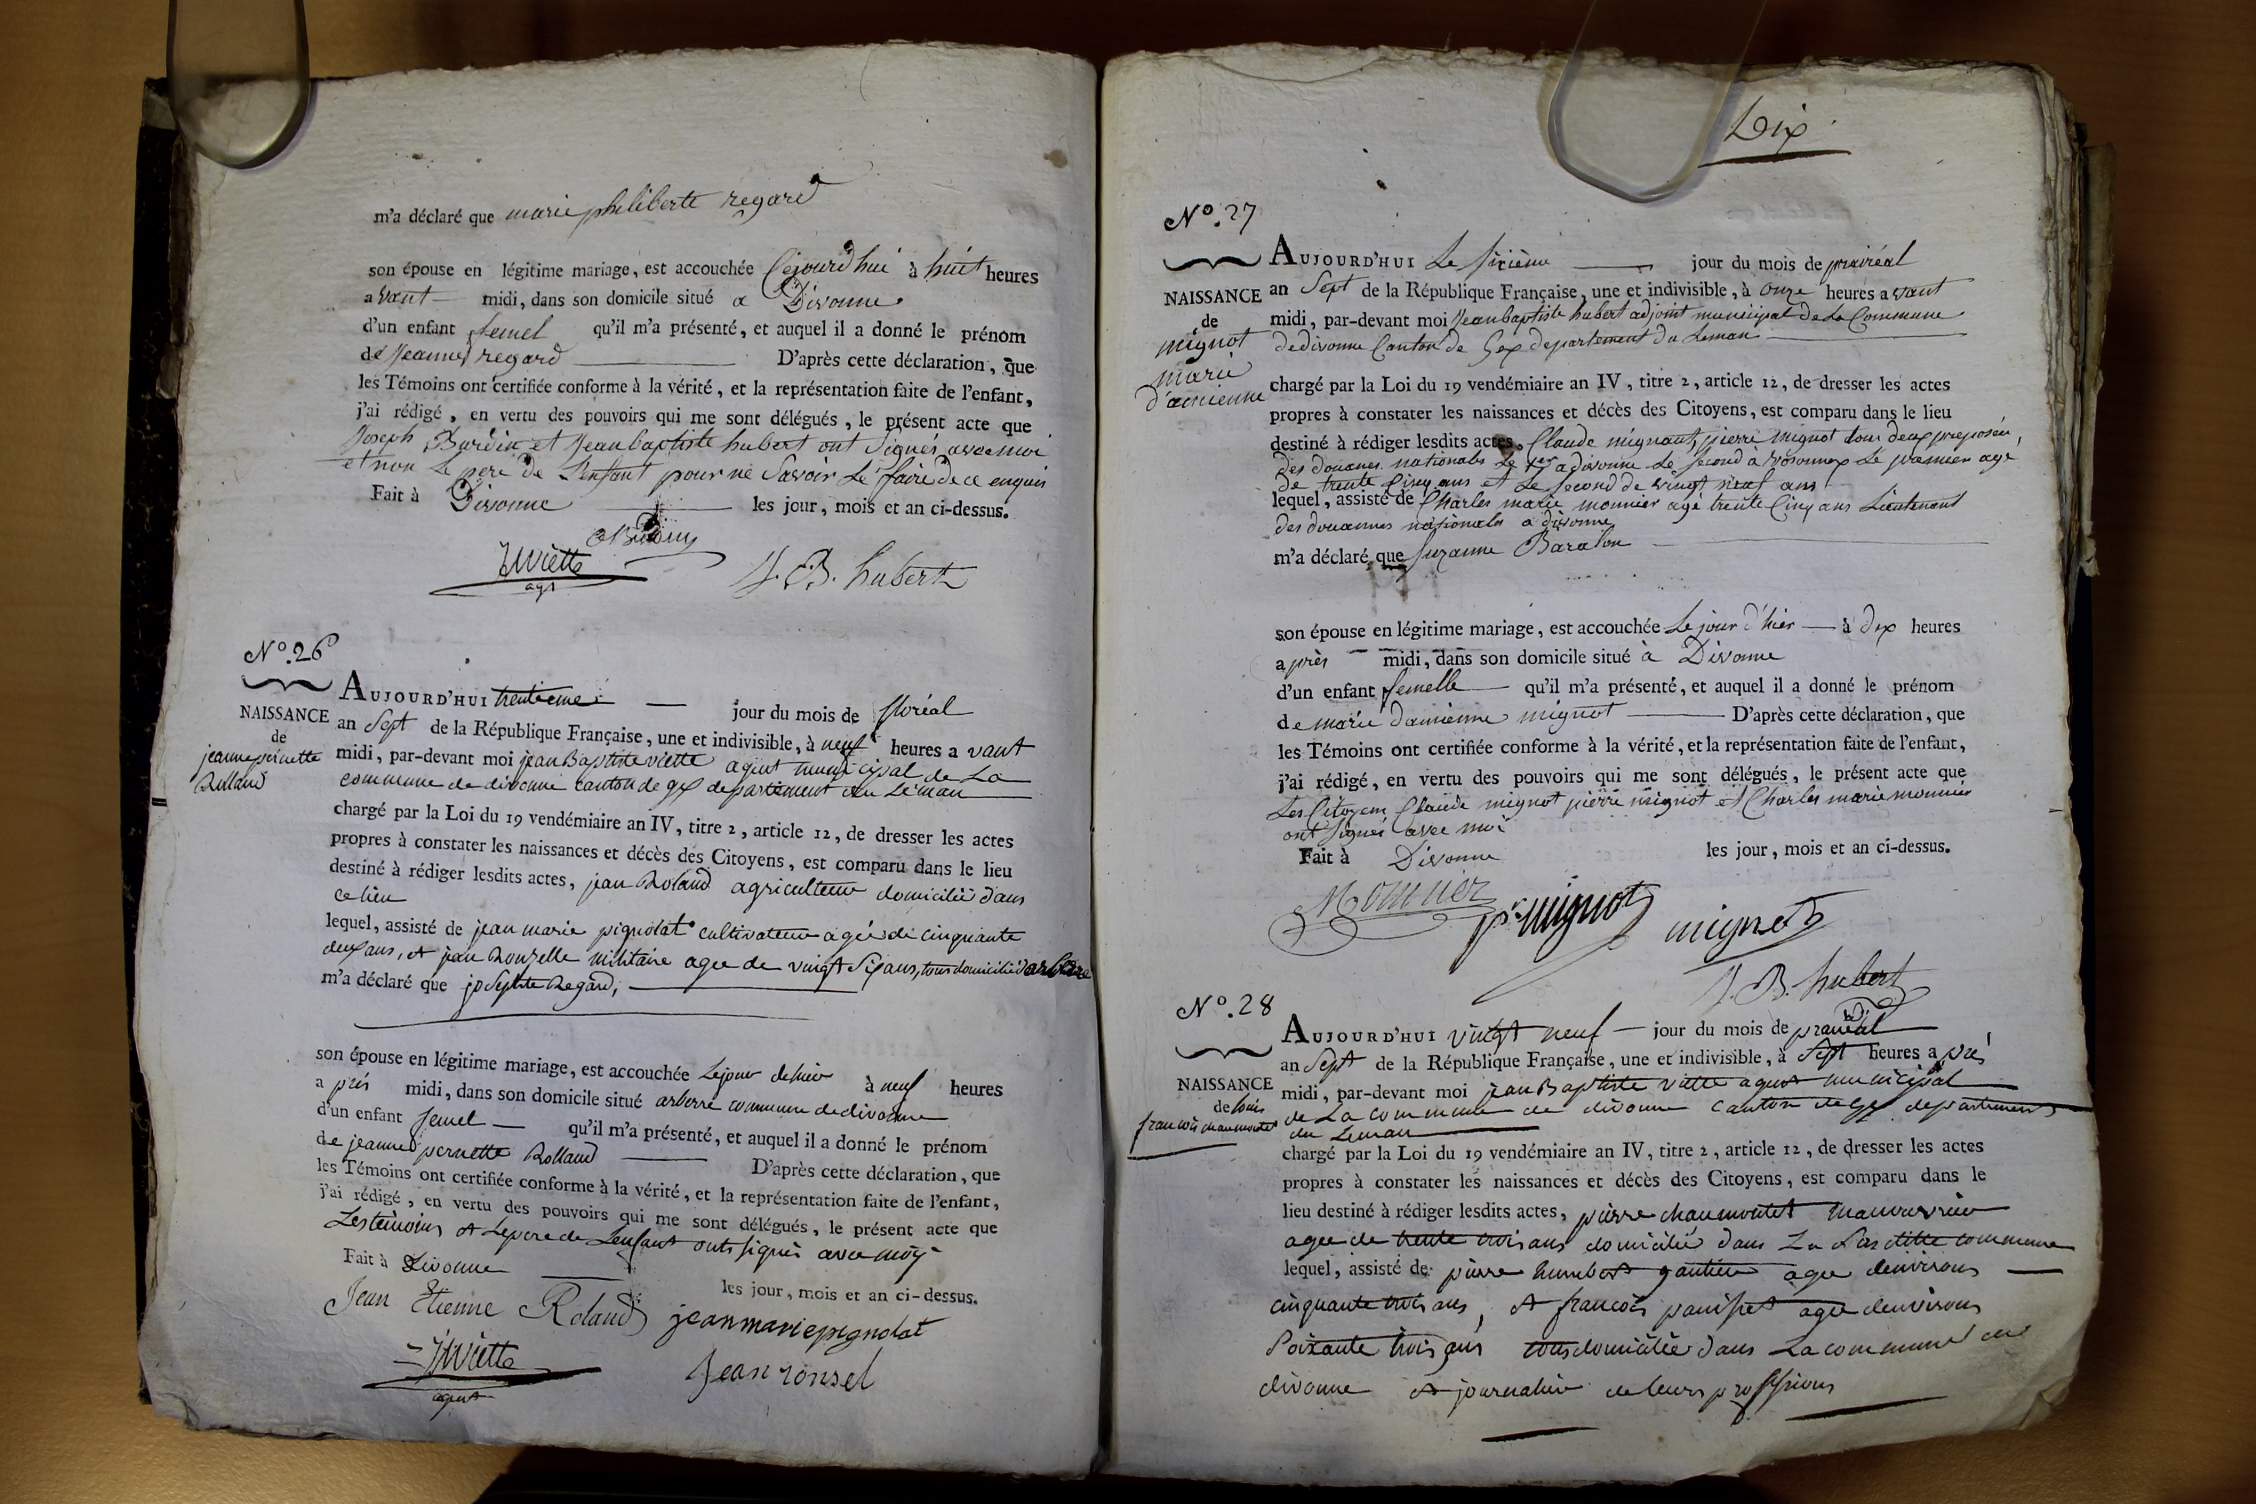 m'a déclaré que marie philiberte regard
son épouse en légitime mariage, est accouchée Cejourd'hui à huit heures
avant midi, dans son domicile situé a Divonne
d'un enfant femel qu'il m'a présenté, et auquel il a donné le prénom
de Jeanne regard D'après cette déclaration, que
les Témoins ont certifiée conforme à la vérité, et la représentation faite de l'enfant,
j'ai rédigé, en vertu des pouvoirs qui me sont délégués, le présent acte que
Joseph Burdin et Jean baptiste hubert ont Signés avec moi
et non Le pere de L'enfant pour ne Savoir Le faire de ce enquis
Fait à Divonne les jour, mois et an ci-dessus.
JBViette
agt
J. B. hubert
N°. 26
NAISSANCE
de
jeanne pernette
Rolland
AUJOURD'HUI trentieme jour du mois de floréal
an Sept de la République Française, une et indivisible, à neuf heures avant
midi, par-devant moi jean Baptiste viette agent municipal de La
commune de divonne canton de gex departement du Leman
chargé par la Loi du 19 vendémiaire an IV, titre 2, article 12, de dresser les actes
propres à constater les naissances et décès des Citoyens, est comparu dans le lieu
destiné à rédiger lesdits actes, jean Roland agriculteur domicilié dans
ce lieu
lequel, assisté de jean marie pignolat cultivateur agé de cinquante
deux ans, et jean Rouzelle militaire agee de vingt Six ans, tous domicilié darberre
m'a déclaré que josephte Regard,
son épouse en légitime mariage, est accouchée Le jour de hier à neuf heures
après midi, dans son domicile situé arberre commune de divonne
d'un enfant femel qu'il m'a présenté, et auquel il a donné le prénom
de jeanne pernette Rolland D'après cette déclaration, que
les Témoins ont certifiée conforme à la vérité, et la représentation faite de l'enfant,
j'ai rédigé, en vertu des pouvoirs qui me sont délégués, le présent acte que
Les temoins et Le pere de L'enfant onts signés avec moy
Fait à Divonne les jour, mois et an ci-dessus.
Jean Etienne Roland jean marie pignolat
JBViette Jean ronsel
agent
Dix
N°. 27
NAISSANCE
de
mignot
marie
d'amienne
AUJOURD'HUI Le sixième jour du mois de prairéal
an Sept de la République Française, une et indivisible, à onze heures avant
midi, par-devant moi Jean baptiste hubert adjoint municipal de La Commune
de divonne Canton de Gex departement du Leman
chargé par la Loi du 19 vendémiaire an IV, titre 2, article 12, de dresser les actes
propres à constater les naissances et décès des Citoyens, est comparu dans le lieu
destiné à rédiger lesdits actes, Claude mignot, pierre mignot tous deux preposés,
des douanes nationales Le 1er a divonne Le second à Le premier agé
de trente Cinq ans et Le second de vingt neuf ans
lequel, assisté de Charles marie monnier agé trente Cinq ans Lieutenant
des douannes nationales a divonne
m'a déclaré que Suzanne Baralon
son épouse en légitime mariage, est accouchée Le jour d'hier à dix heures
après midi, dans son domicile situé à Divonne
d'un enfant femelle qu'il m'a présenté, et auquel il a donné le prénom
de marie damienne mignot D'après cette déclaration, que
les Témoins ont certifiée conforme à la vérité, et la représentation faite de l'enfant,
j'ai rédigé, en vertu des pouvoirs qui me sont délégués, le présent acte que
Les Citoyens Claude mignot pierre mignot et Charles marie monnier
ont signés avec moi
Fait à Divonne les jour, mois et an ci-dessus.
Monnier pre mignot mignot
J. B. hubert
N°. 28
NAISSANCE
de louis
francois chaumontet
AUJOURD'HUI vingt neuf jour du mois de prairial
an Sept de la République Française, une et indivisible, à Sept heures après
midi, par-devant moi jean Baptiste viette agent municipal
de La commune de divonne canton de Gex departement
du Leman
chargé par la Loi du 19 vendémiaire an IV, titre 2, article 12, de dresser les actes
propres à constater les naissances et décès des Citoyens, est comparu dans le
lieu destiné à rédiger lesdits actes, pierre chaumontet manouvrier
agee de trente trois ans domicilié dans La Susditte commune
lequel, assisté de pierre humbert gautier agee denvirons
cinquante trois ans, et francois panisset agee denvirons
Soixante trois ans tous domiciliée dans La commune de
divonne et journalier de leurs professions